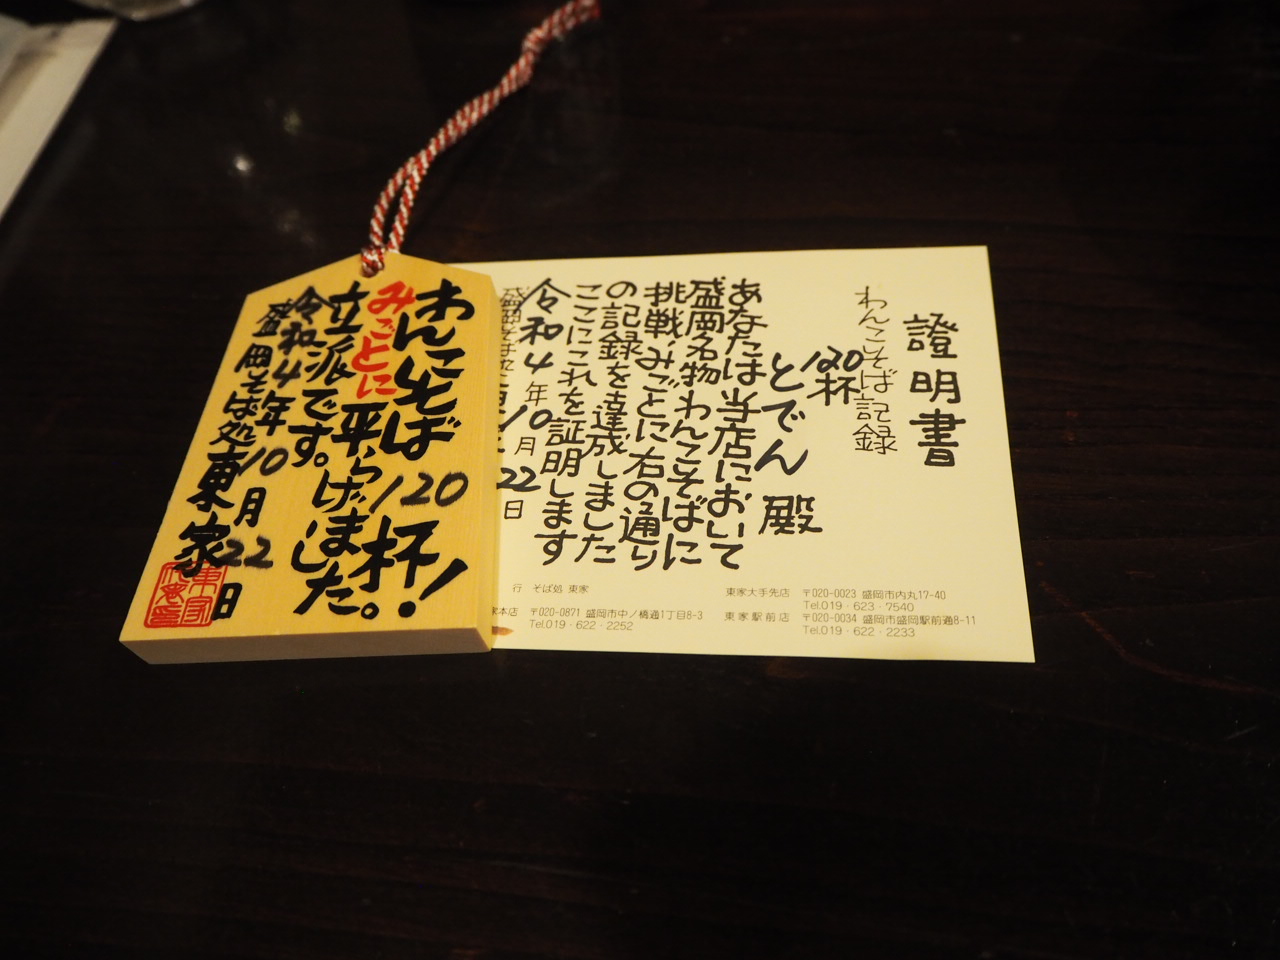 わんこそば120杯!
みごとに平らげました。
立派です。
令和4年10月22日
盛岡そば処東家
證明書
わんこそば記録
120杯
とでん 殿
あなたは当店において
盛岡名物わんこそばに
挑戦、みごとに右の通り
の記録を達成しました
ここにこれを証明します
令和4年10月22日
行 そば処 東家
家本店 〒020-0871 盛岡市中ノ橋通1丁目8-3
Tel.019・622・2252
東家大手先店 〒020-0023 盛岡市内丸17-40
Tel.019・623・7540
東家駅前店 〒020-0034 盛岡市盛岡駅前通8-11
Tel.019・622・2233